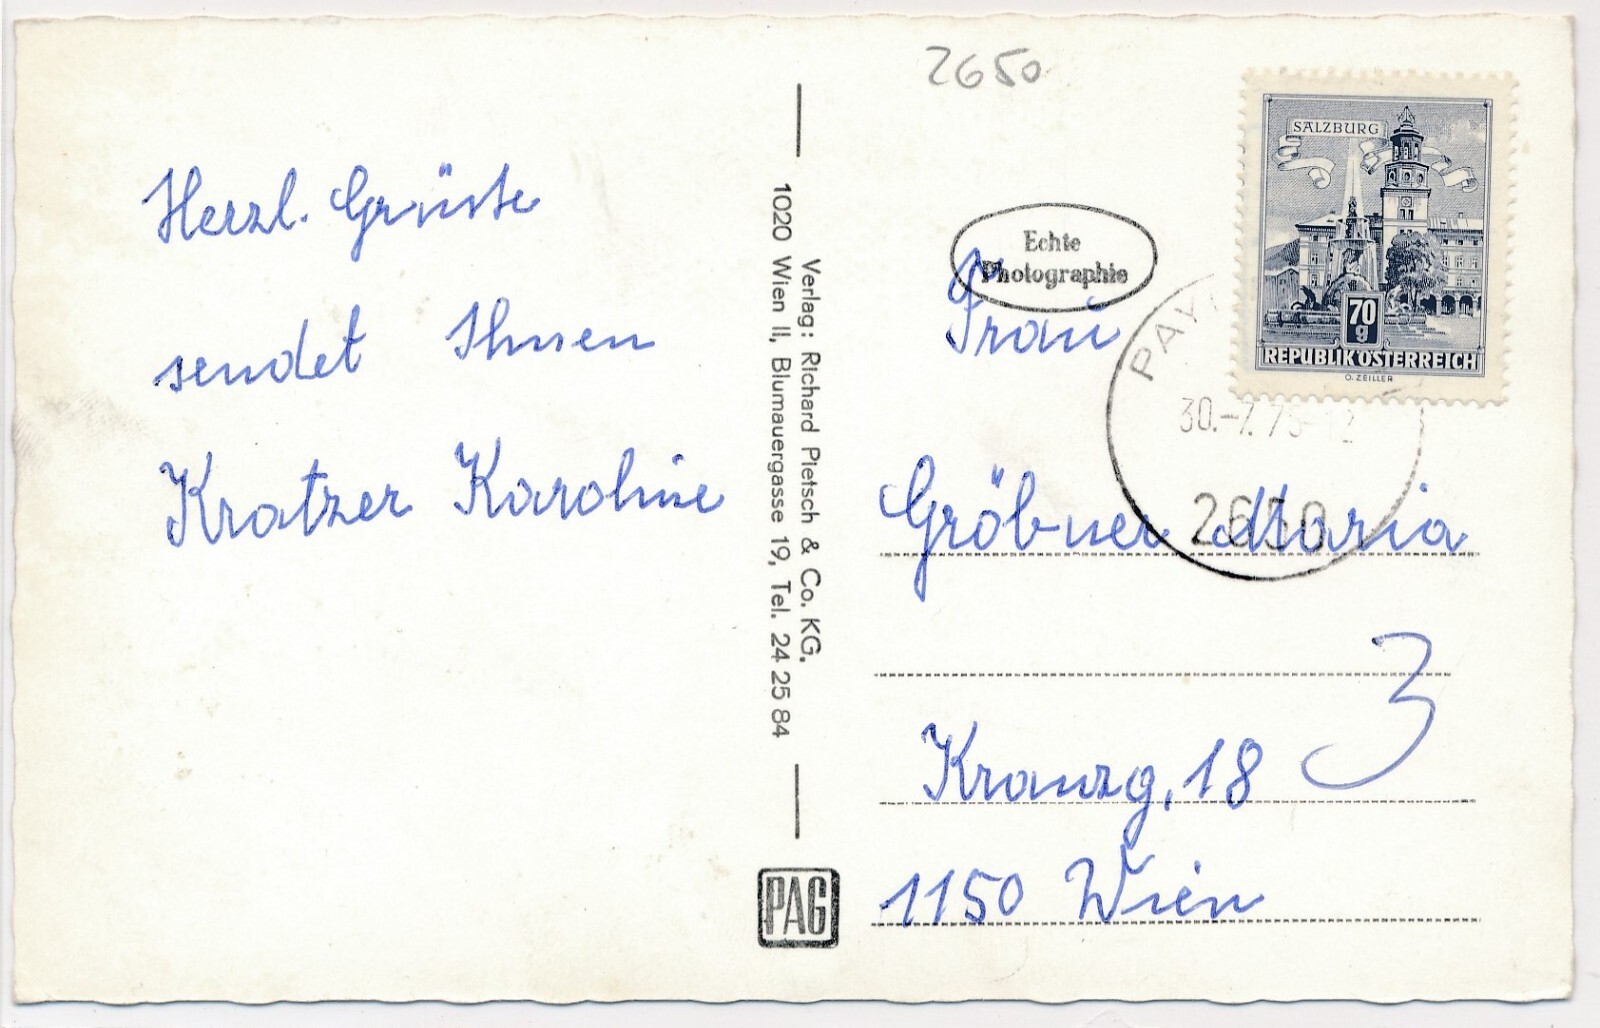 2650
SALZBURG
70
g
REPUBLIK ÖSTERREICH
O. ZEILLER
Herzl. Grüße
sendet Ihnen
Kratzer Karoline
Verlag: Richard Pietsch & Co. KG.
1020 Wien II, Blumauergasse 19, Tel. 24 25 84
PAG
Echte
Photographie
30.-7.75-12
2650
Frau
Gröbner Maria
3
Kranzg. 18
1150 Wien